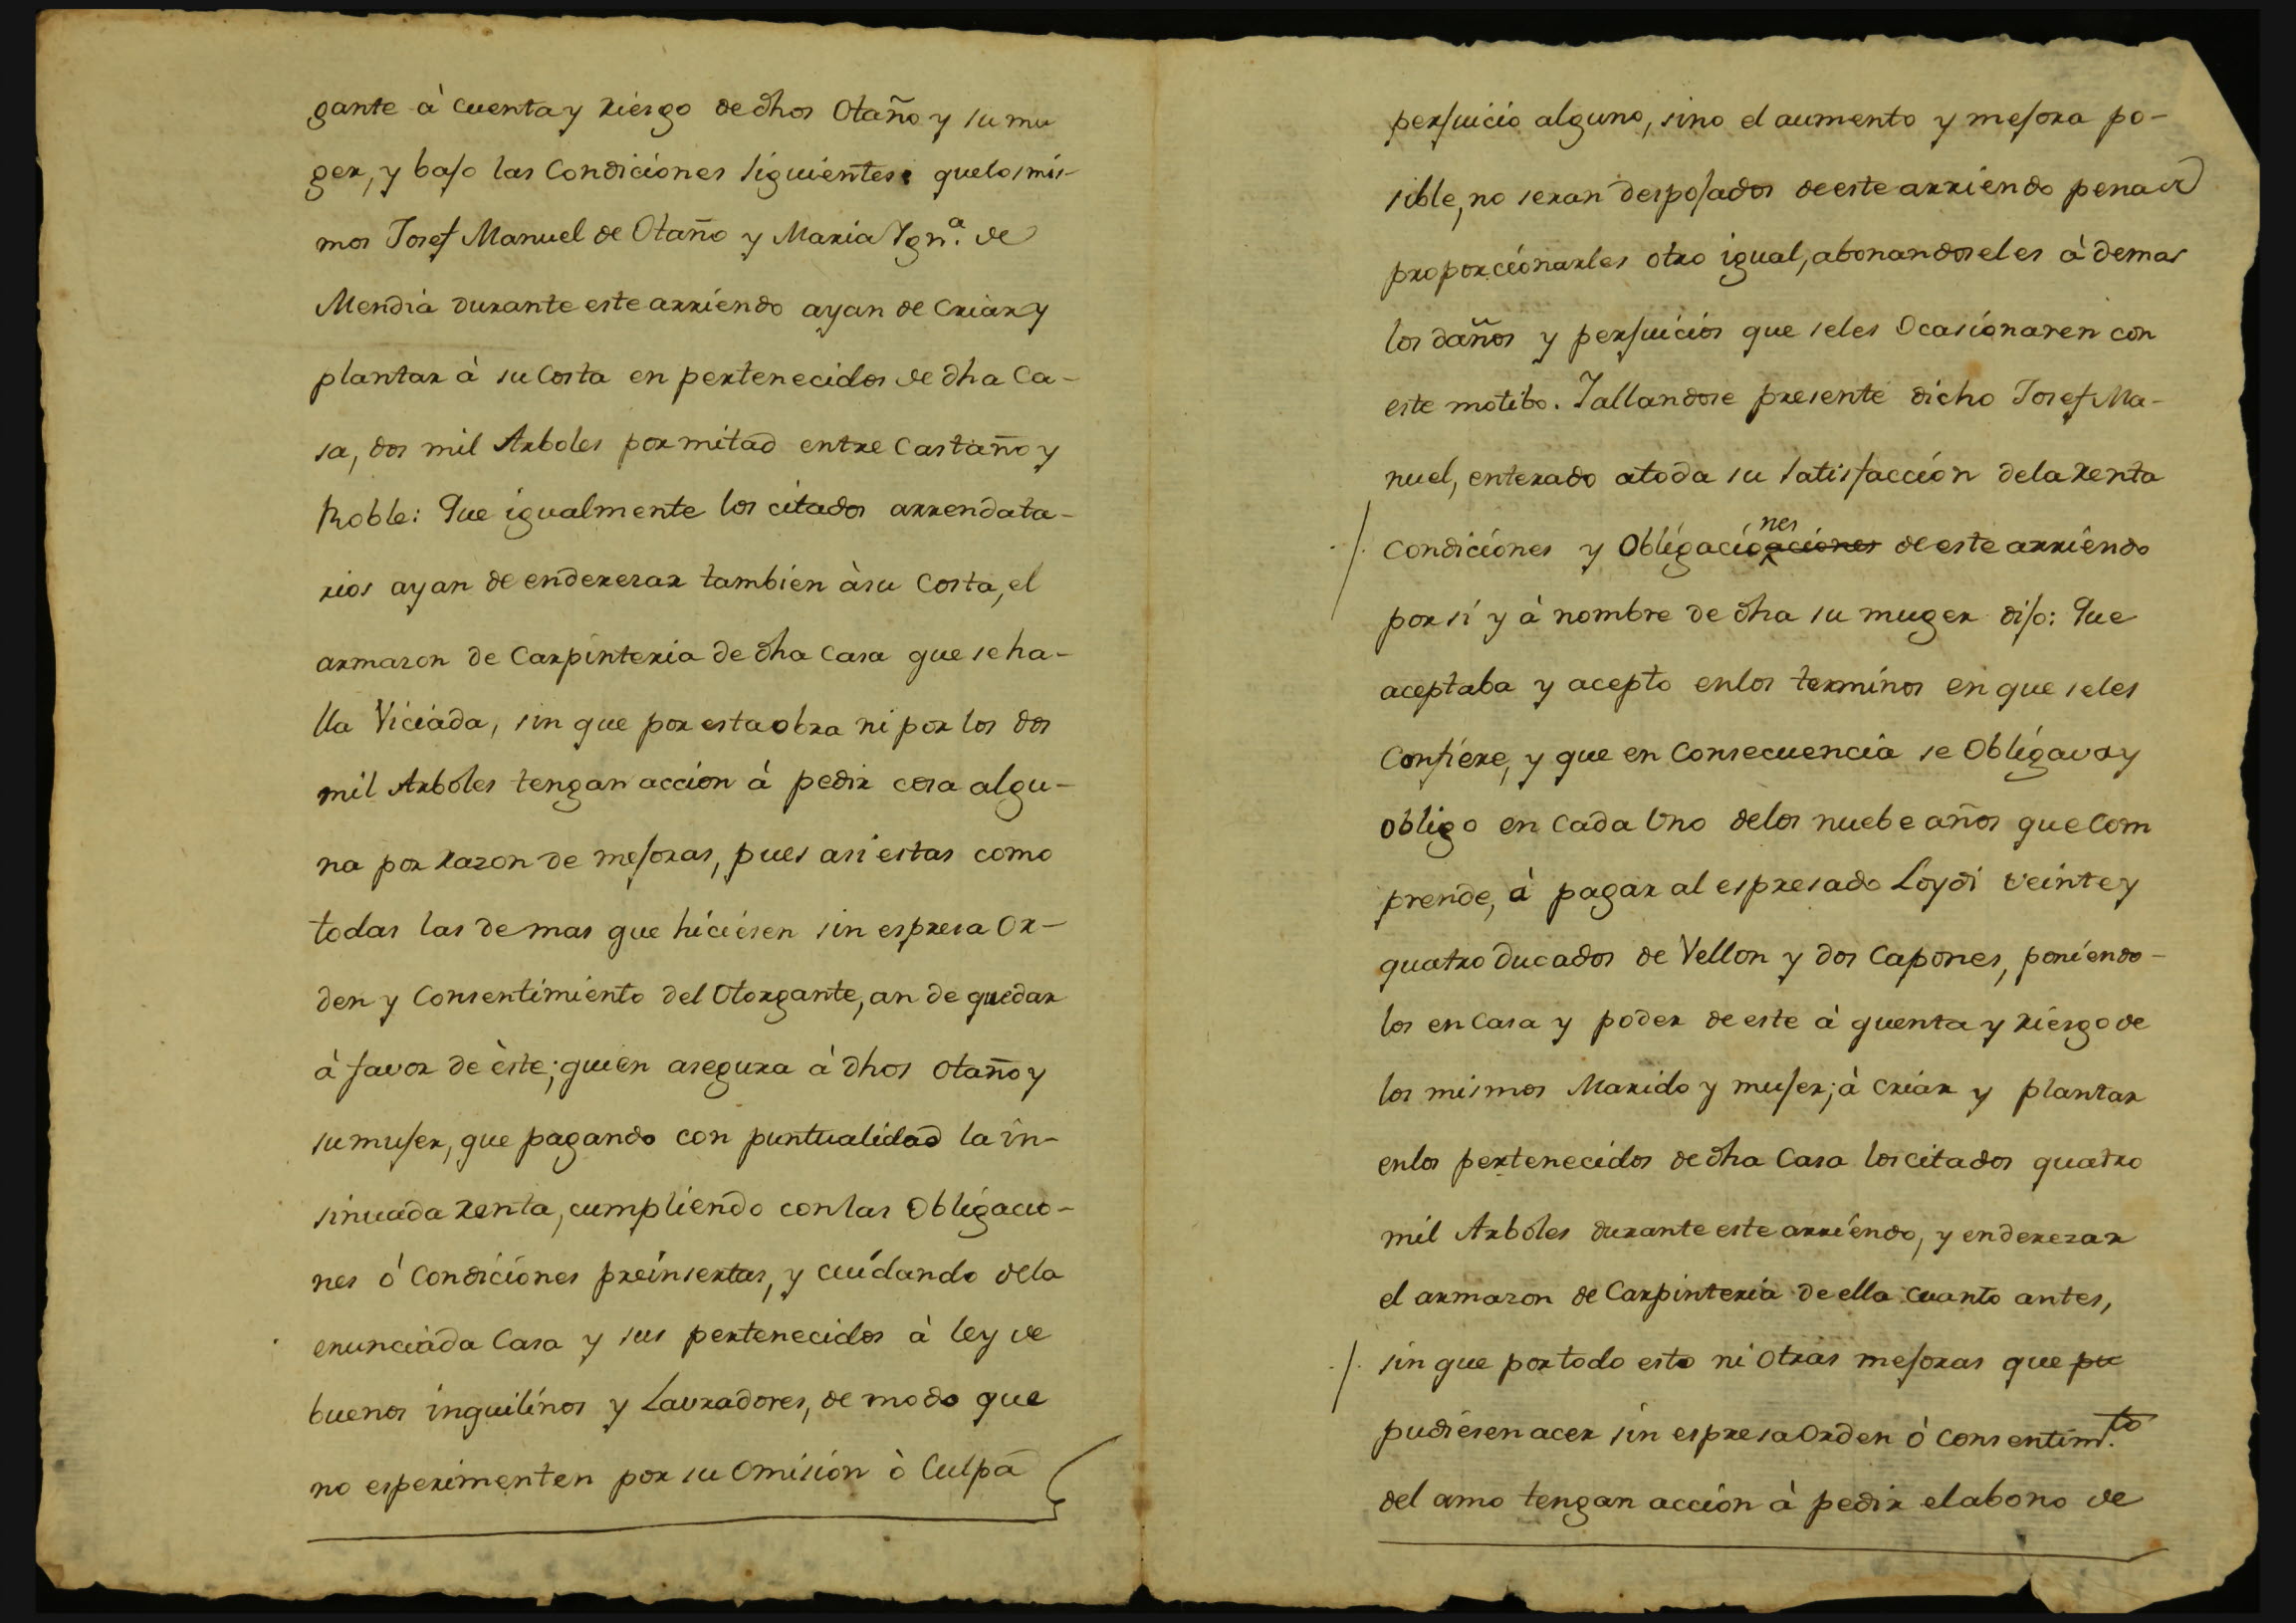 gante à cuenta y riesgo de dhos Otaño y su mu
ger, y bajo las Condiciones siguientes: que los mis-
mos Josef Manuel de Otaño y Maria Ygn.ª de
Mendia durante este arriendo ayan de Criar y
plantar à su Costa en pertenecidos de dha Ca-
sa, dos mil Arboles por mitad entre Castaño y
Roble: Que igualmente los citados arrendata-
rios ayan de enderezar tambien à su Costa, el
armazon de Carpinteria de dha Casa que se ha-
lla Viciada, sin que por esta obra ni por los dos
mil Arboles tengan acción à pedir cosa algu-
na por razon de mejoras, pues asi estas como
todas las demas que hiciesen sin espresa Or-
den y Consentimiento del Otorgante, an de quedar
à favor de èste; quien asegura à dhos Otaño y
su mujer, que pagando con puntualidad la in-
sinuada renta, cumpliendo con las Obligacio-
nes ó Condiciones preinsertas, y cuidando de la
enunciada Casa y sus pertenecidos à ley de
buenos inquilinos y Lavradores, de modo que
no esperimenten por su Omisión ò Culpa
perjuicio alguno, sino el aumento y mejora po-
sible, no seran despojados de este arriendo pena de
proporcionarles otro igual, abonandoseles à demas
los daños y perjuicios que seles Ocasionaren con
este motibo. Jallandose presente dicho Josef Ma-
nuel, enterado atoda su satisfacción dela renta
Condiciones y Obligacionesaciones de este arriendo
por si y à nombre de dha su muger dijo: Que
aceptaba y acepto en los terminos en que seles
Confiere, y que en Consecuencia se Obligava y
obligo en Cada Uno delos nuebe años que Com
prende, à pagar al espresado Loydi veinte y
quatro ducados de Vellon y dos Capones, poniendo-
los en Casa y poder de este à quenta y riesgo de
los mismos Marido y mujer; à criar y plantar
en los pertenecidos de dha Casa los citados quatro
mil Arboles durante este arriendo, y enderezar
el armazon de Carpinteria de ella cuanto antes,
sin que por todo esto ni Otras mejoras que pu
pudiesen acer sin espresa Orden ó Consentim.to
del amo tengan acción à pedir el abono de